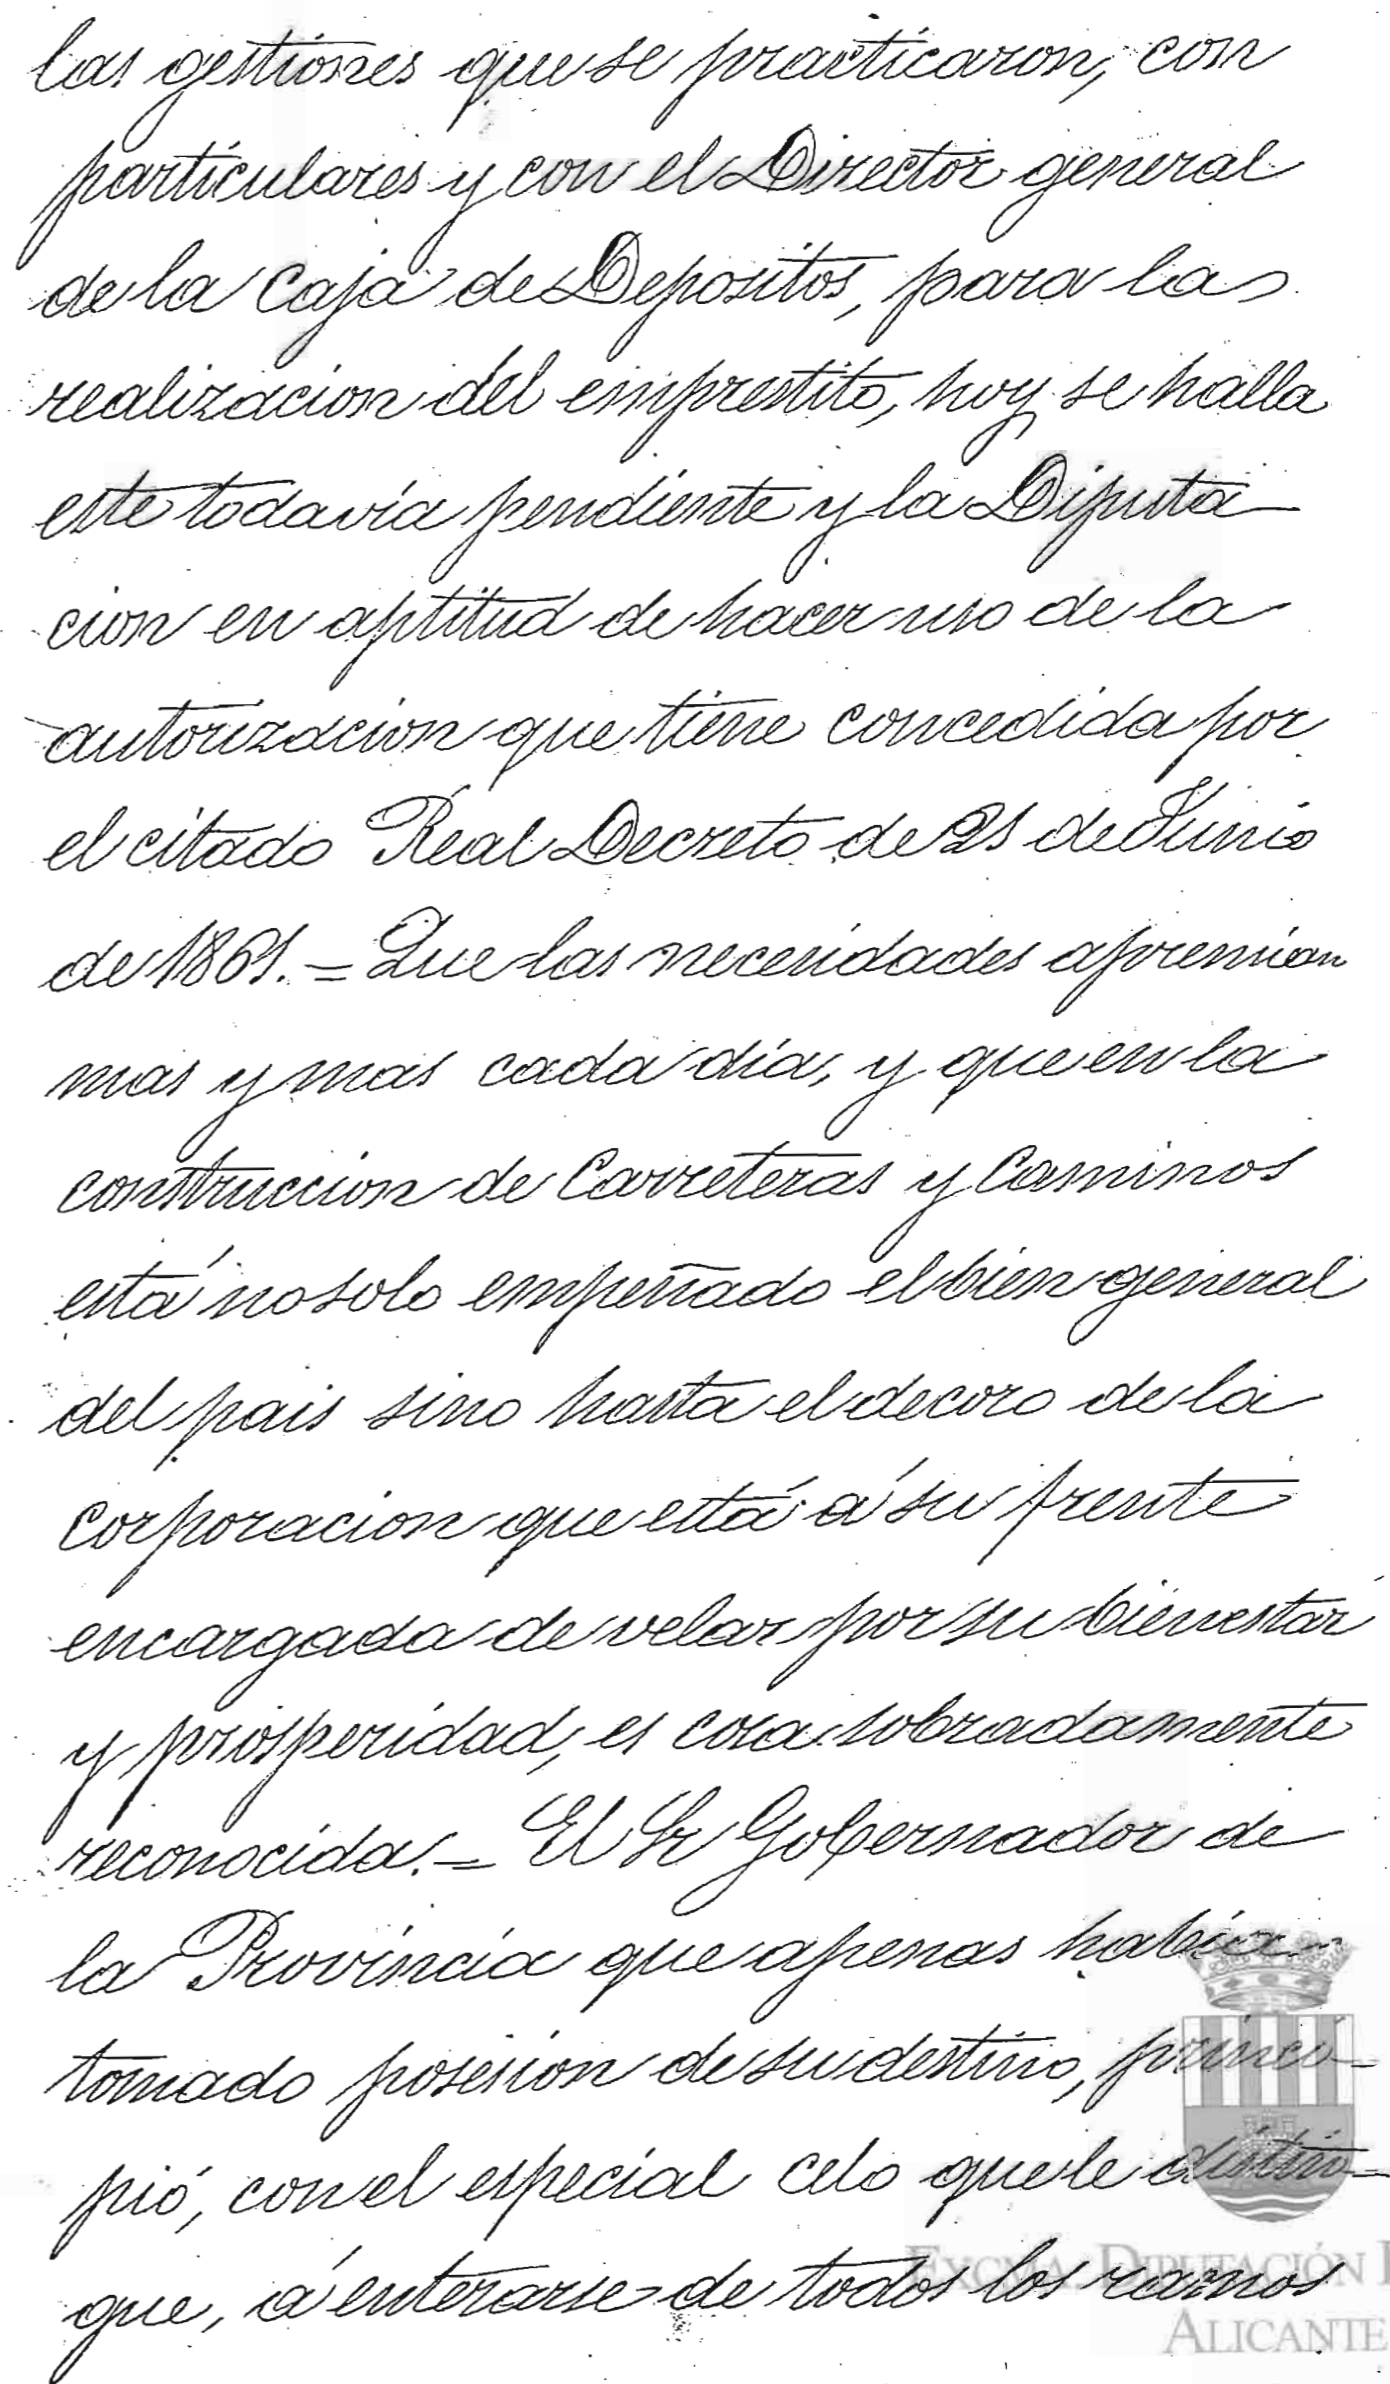 las gestiones que se practicaron, con
particulares y con el Director general
de la Caja de Depositos, para la
realizacion del emprestito, hoy se halla
este todavía pendiente y la Diputa
cion en aptitud de hacer uso de la
autorizacion que tiene concedida por
el citado Real Decreto de 21 de Junio
de 1861. = Que las necesidades apremian
mas y mas cada día, y que en la
construccion de Carreteras y Caminos
está no solo empeñado el bien general
del pais sino hasta el decoro de la
corporacion que está á su frente
encargada de velar por su bienestar
y prosperidad, es cosa sobradamente
reconocida. = El Sr Gobernador de
la Provincia que apenas había
tomado posesion de su destino, princi-
pió, con el especial celo que le distin-
gue, á enterarse de todos los ramos
EXCMA. DIPUTACIÓN
ALICANTE